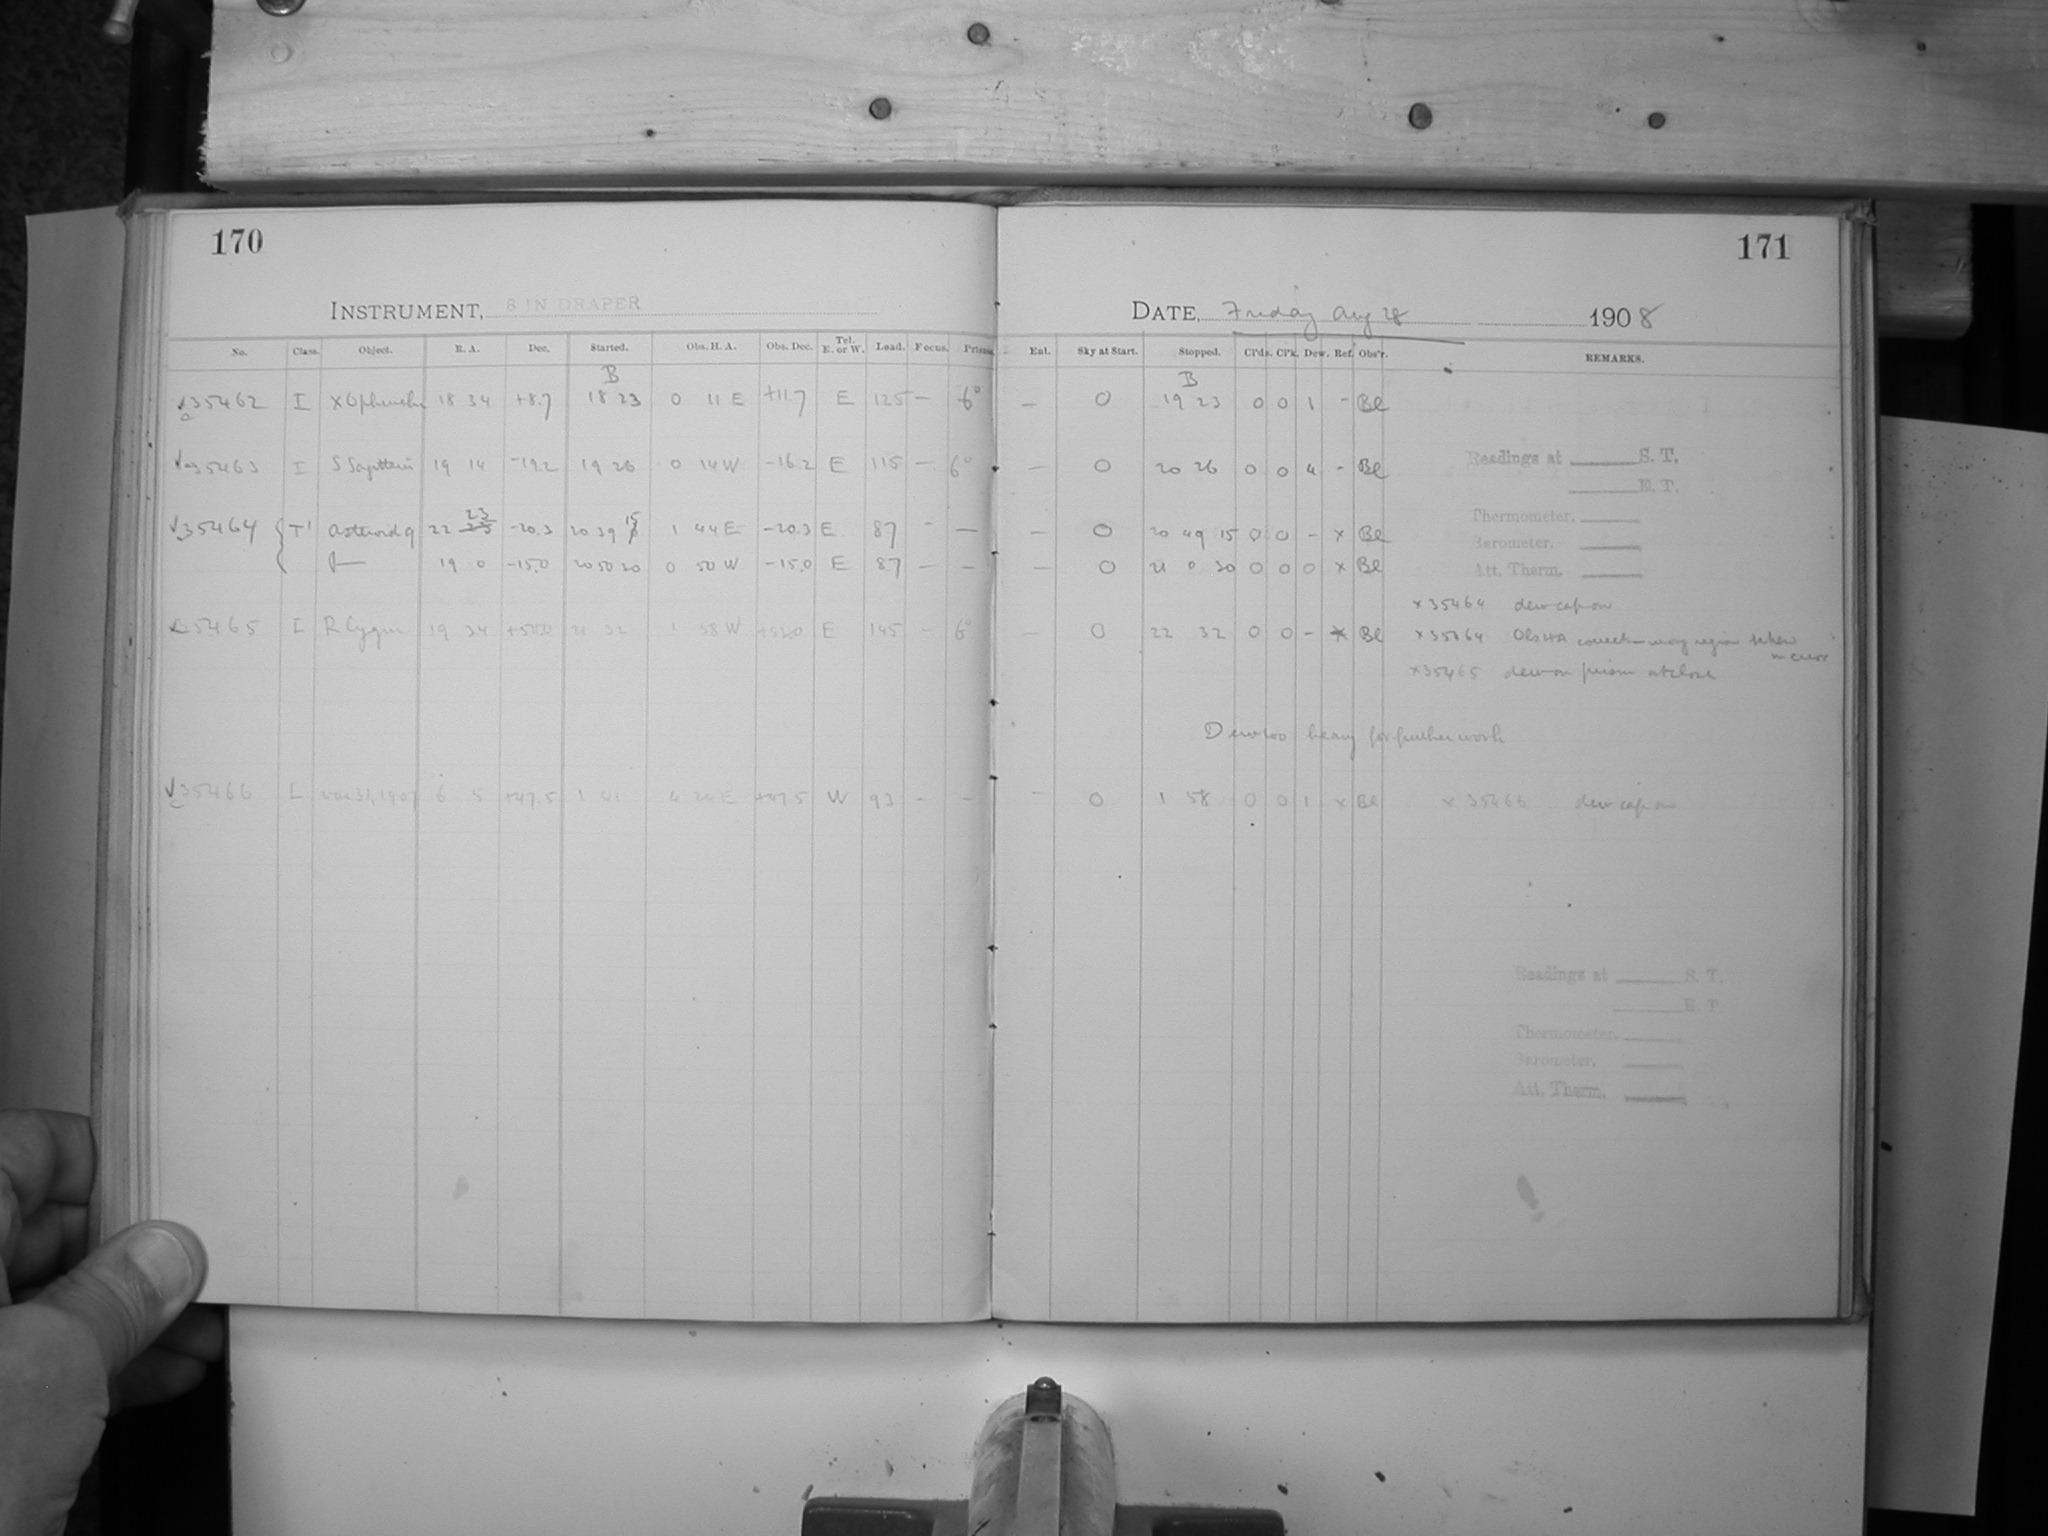 170
171
INSTRUMENT, 8 IN DRAPER
DATE, Friday Aug 28 1908
No. Class. Object. R. A. Dec. Started. Obs. H. A. Obs. Dec. Tel. E. or W. Lead. Focus. Prisms. Ext. Sky at Start. Stopped. Cl'ds. Cl'k. Dew. Ref. Obs'r. REMARKS.
B B
35462 I X Ophiuchi 18 34 +8.7 18 23 0 11 E +11.7 E 125 — 6° — 0 19 23 0 0 1 - Bl
Readings at S. T.
35463 I S Sagittarii 19 14 -19.2 19 26 0 14 W -16.2 E 115 — 6° — 0 20 26 0 0 4 - Bl
E. T.
Thermometer.
23 15
35464 T' asteroid q 22 -20.3 20 39 1 44 E -20.3 E 87 - — — 0 20 49 15 0 0 - x Bl
Barometer.
19 0 -15.0 20 50 20 0 50 W -15.0 E 87 — — — 0 21 0 20 0 0 0 x Bl
Att. Therm.
x 35464 dew cap on
35465 I R Cygni 19 34 21 32 1 38 W E 145 - 6° — 0 22 32 0 0 - x Bl x 35464 Obs HA correct - wrong region taken
in error
x 35465 dew on prism at close
Dew too heavy for further work
35466 I var 31, 1907 6 5 +47.5 1 41 4 24 E +47.5 W 93 - - - 0 1 58 0 0 1 x Bl x 35466 dew cap on
Readings at S. T.
E. T.
Thermometer.
Barometer.
Att. Therm.